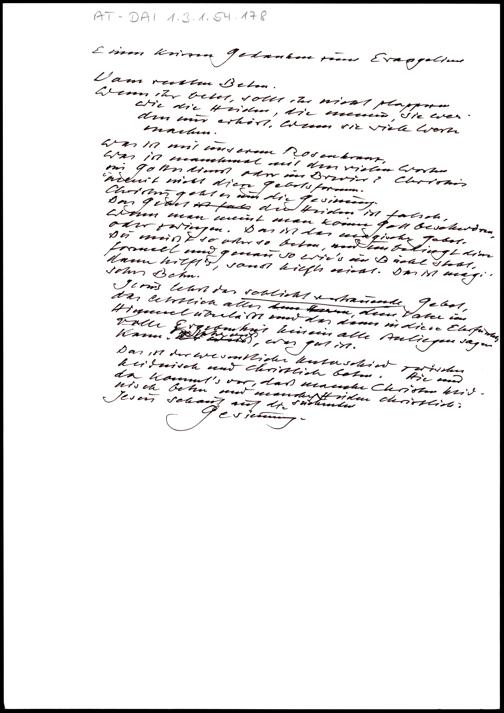 AT-DAI 1.3.1.54.178
Einen kurzen Gedanken zum Evangelium
Vom rechten Beten.
Wenn ihr betet, sollt ihr nicht plappern
wie die Heiden, die meinen, sie wer-
den nur erhört, wenn sie viele Worte
machen.
Was ist mit unserem Rosenkranz,
was ist manchmal mit den vielen Worten
im Gottesdienst oder im Brevier? Christus
meint nicht diese Gebetsformen.
Christus geht es um die Gesinnung.
Das Gebet der Heiden ist falsch,
wenn man meint man könne Gott beschwören,
oder zwingen. Das ist das magische Gebet.
Du mußt so oder so beten, und im diese
Formel und genau so wie's im Büchl steht,
dann hilft's, sonst hilfts nicht. Das ist magi-
sches Beten.
Jesus lehrt das schlicht vertrauende Gebet,
das letztlich alles dem Vater im
Himmel überläßt und das dann in diese
volle hinein alle Anliegen sagen
kann. was gut ist.
Das ist der wesentliche Unterschied zwischen
heidnisch und christlich beten. Hie und
da kommt's vor, daß manche Christen heid-
nisch beten und manche Heiden christlich.
Jesus schaut auf die
Gesinnung.